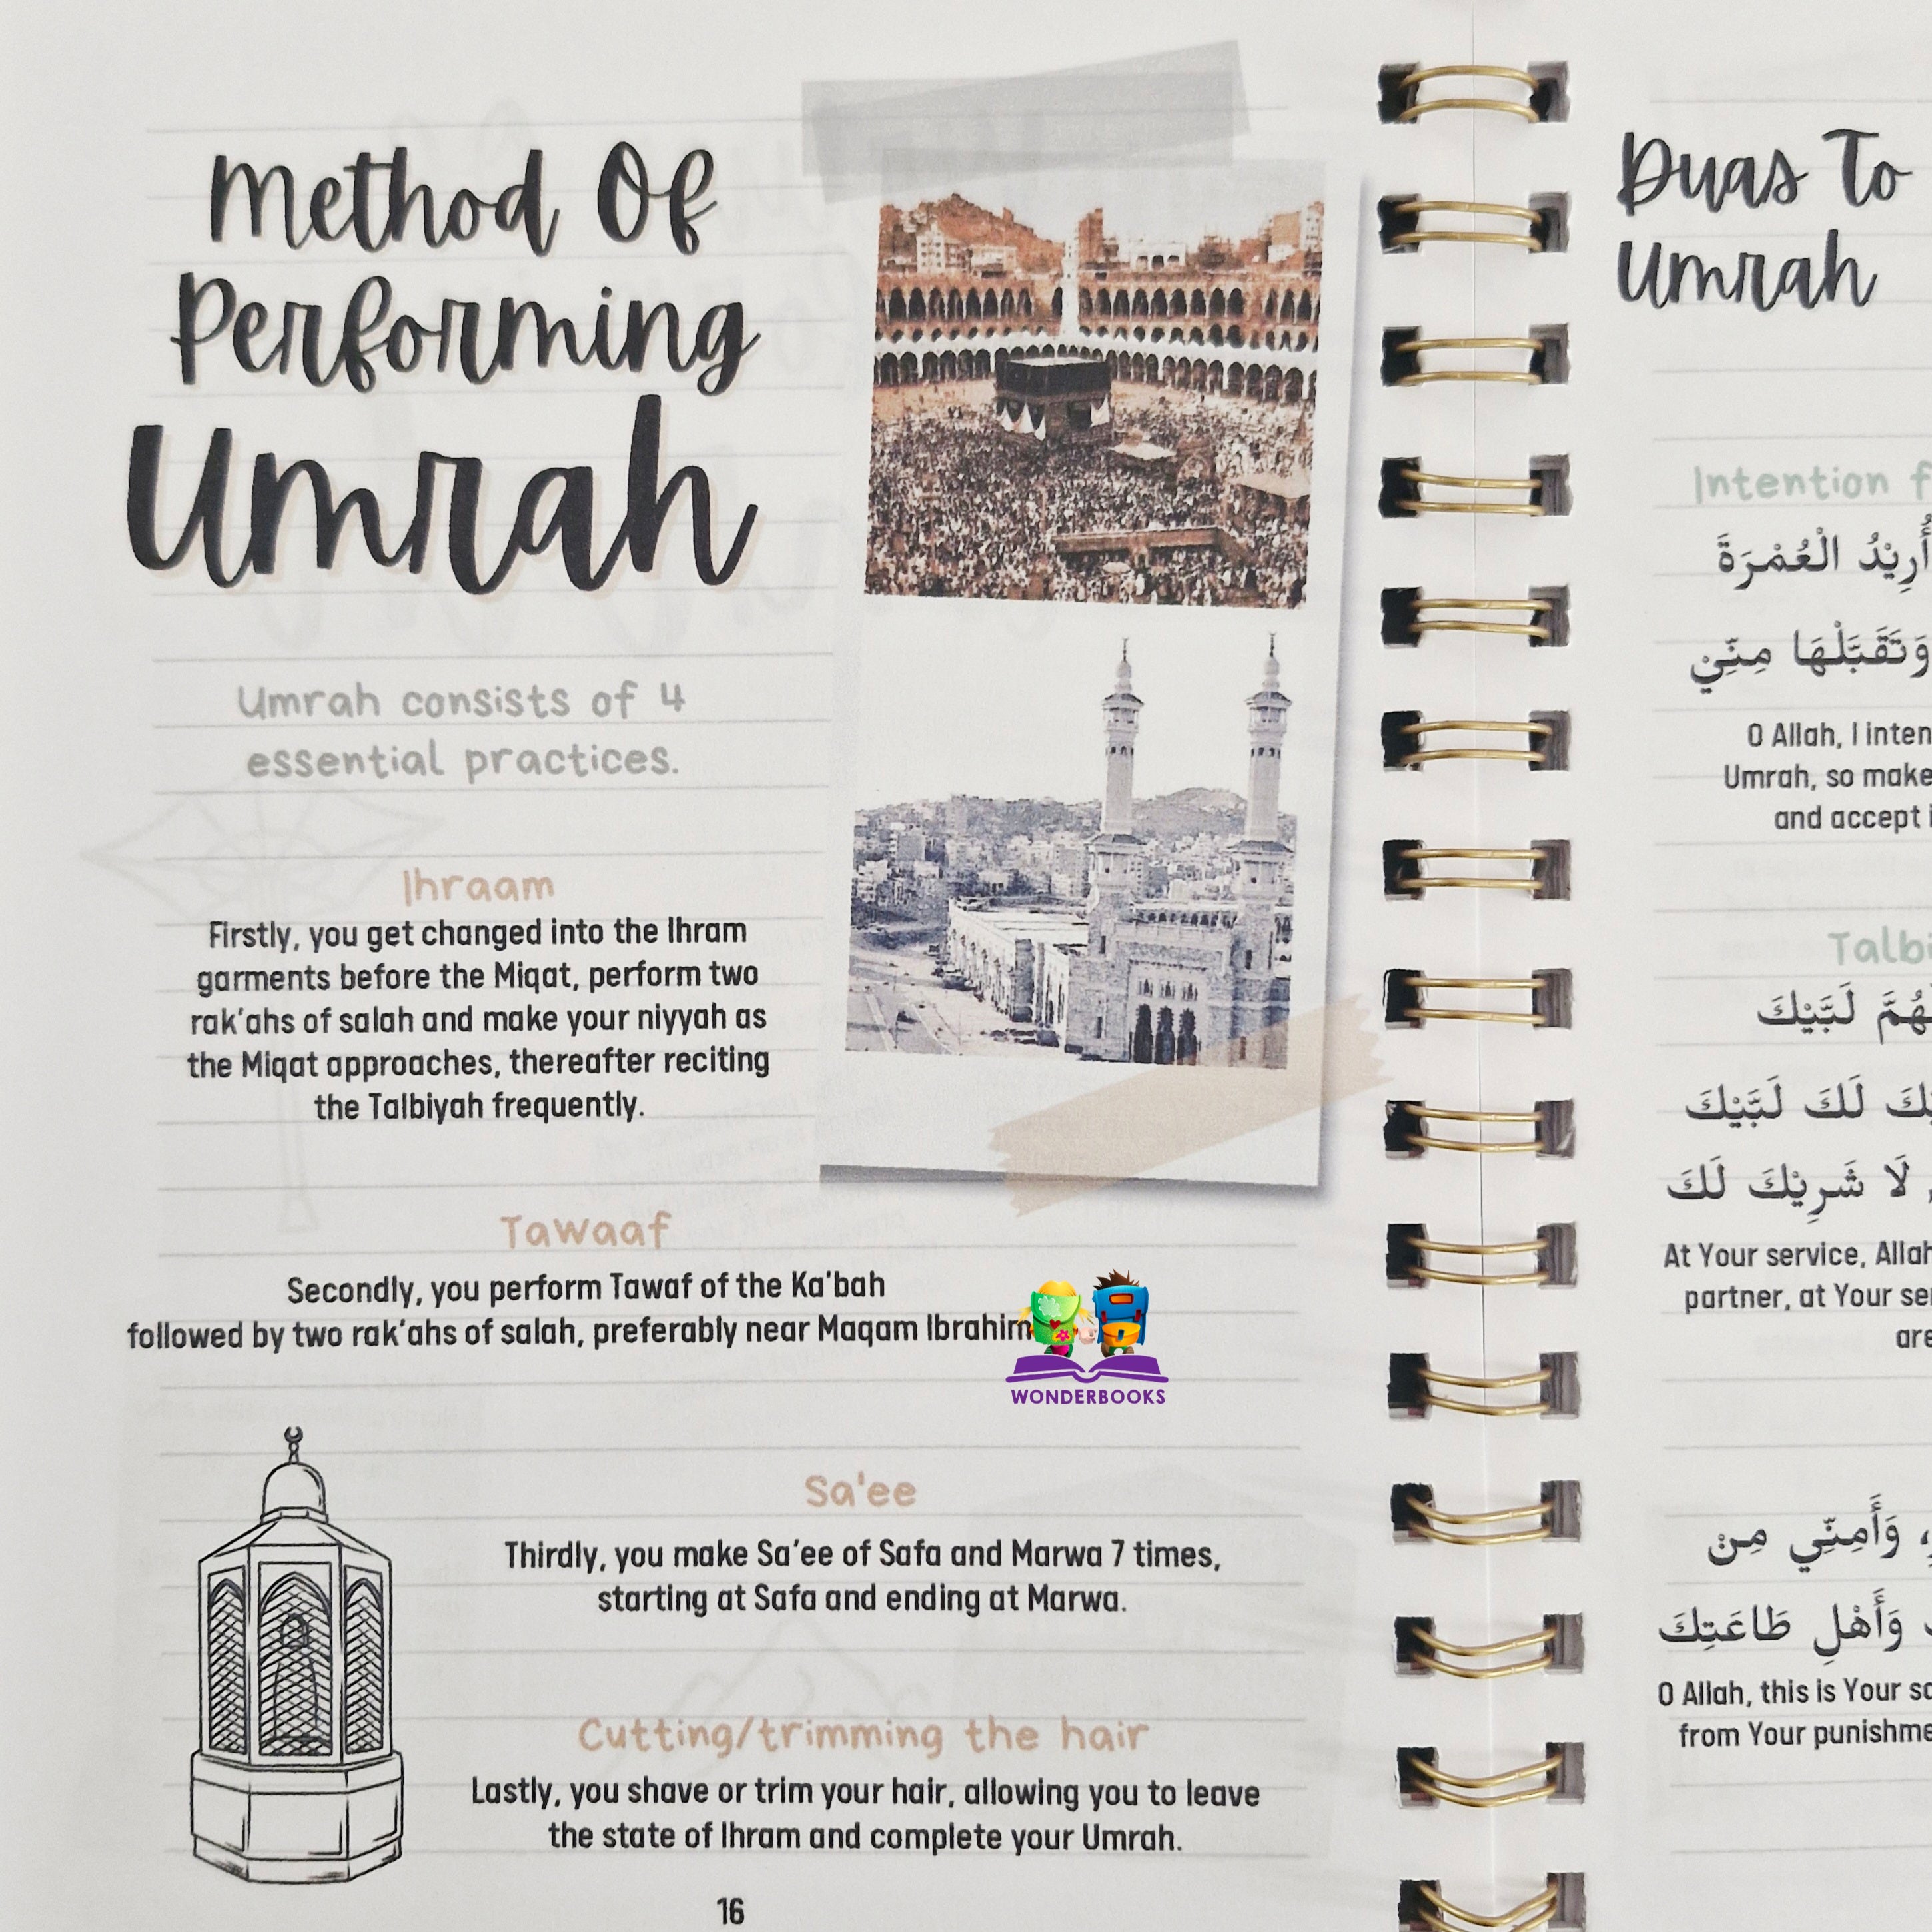 Method Of
Performing
Umrah
Umrah consists of 4
essential practices.
Ihraam
Firstly, you get changed into the Ihram
garments before the Miqat, perform two
rak'ahs of salah and make your niyyah as
the Miqat approaches, thereafter reciting
the Talbiyah frequently.
Tawaaf
Secondly, you perform Tawaf of the Ka'bah
followed by two rak'ahs of salah, preferably near Maqam Ibrahim
WONDERBOOKS
Sa'ee
Thirdly, you make Sa'ee of Safa and Marwa 7 times,
starting at Safa and ending at Marwa.
Cutting/trimming the hair
Lastly, you shave or trim your hair, allowing you to leave
the state of Ihram and complete your Umrah.
16
Duas To
Umrah
Intention
أُرِيْدُ الْعُمْرَةَ
وَتَقَبَّلْهَا مِنِّيْ
O Allah, I
Umrah, so make
and accept
لَبَّيْكَ
لَكَ لَبَّيْكَ
لَا شَرِيْكَ لَكَ
At Your service,
partner, at Your
وَأَمِنِّي مِنْ
وَأَهْلِ طَاعَتِكَ
O Allah, this is Your
from Your